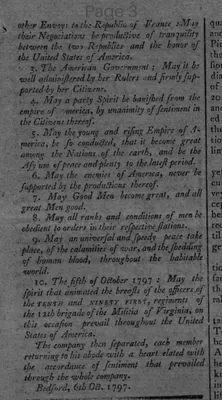 Page 3
other Envoys to the Republic of France; May
their Negociations be productive of tranquility
between the two Republics and the honor of
the United States of America.
2. The American Government; May it be
well administered by her Rulers and firmly sup-
ported by her Citizens.
4. May a party Spirit be banished from the
empire of America, by unanimity of sentiment in
the Citizens thereof.
5. May the young and rising Empire of A-
merica, be so conducted, that it become great
among the Nations of the earth, and be the
Asylum of peace and plenty to the latest period.
6. May the enemies of America, never be
supported by the productions thereof.
7. May Good Men become great, and all
great Men good.
8. May all ranks and conditions of men be
obedient to orders in their respective stations.
9. May an universal and speedy peace take
place, of the calamities of war, and the shedding
of human blood, throughout the habitable
world.
10. The fifth of October 1797; May the
spirit that animated the breasts of the officers of
the TENTH and NINETY FIRST, regiments of
the 12th brigade of the Militia of Virginia, on
this occasion prevail throughout the United
States of America.
The company then separated, each member
returning to his abode with a heart elated with
the accordance of sentiment that prevailed
through the whole company.
Bedford, 6th Oct. 1797.